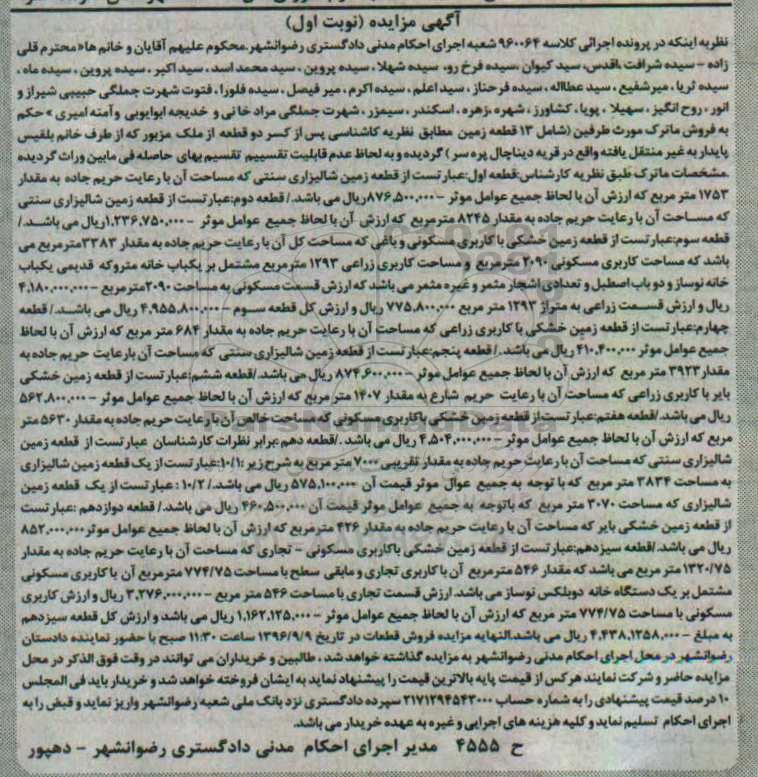 آگهی مزایده (نوبت اول)
نظر به اینکه در پرونده اجرائی کلاسه ۹۶۰۰۶۴ شعبه اجرای احکام مدنی دادگستری رضوانشهر.محکوم علیهم آقایان و خانم ها«محترم قلی
زاده - سیده شرافت ،اقدس، سید کیوان ،سیده فرخ رو، سیده شهلا ، سیده پروین ، سید محمد اسد ، سید اکبر ، سیده پروین ، سیده ماه ،
سیده ثریا ، میرشفیع ، سید عطااله ، سیده فرحناز ، سید اعلم ، سیده اکرم ، میر فیصل ، سیده فلورا ، فتوت شهرت جملگی حبیبی شیراز و
انور ، روح انگیز ، سهیلا ، پویا ، کشاورز ، شهره ،زهره ، اسکندر ، سیمزر ، شهرت جملگی مراد خانی و خدیجه ابوایوبی وآمنه امیری » حکم
به فروش ماترک مورث طرفین (شامل ۱۳ قطعه زمین مطابق نظریه کاشناسی پس از کسر دو قطعه از ملک مزبور که از طرف خانم بلقیس
پایدار به غیر منتقل یافته واقع در قریه دیناچال پره سر ) گردیده و به لحاظ عدم قابلیت تقسییم تقسیم بهای حاصله فی مابین وراث گردیده
.مشخصات ماترک طبق نظریه کارشناس:قطعه اول:عبارتست از قطعه زمین شالیزاری سنتی که مساحت آن با رعایت حریم جاده به مقدار
۱۷۵۳ متر مربع که ارزش آن با لحاظ جمیع عوامل موثر - ۸۷۶،۵۰۰،۰۰۰ریال می باشد./ قطعه دوم:عبارتست از قطعه زمین شالیزاری سنتی
که مساحت آن با رعایت حریم جاده به مقدار ۸۲۴۵ مترمربع که ارزش آن با لحاظ جمیع عوامل موثر - ۱،۲۳۶،۷۵۰،۰۰۰ریال می باشد./
قطعه سوم:عبارتست از قطعه زمین خشکی با کاربری مسکونی و باغی که مساحت کل آن با رعایت حریم جاده به مقدار ۳۳۸۳مترمربع می
باشد که مساحت کاربری مسکونی ۲۰۹۰ مترمربع و مساحت کاربری زراعی ۱۲۹۳ مترمربع مشتمل بر یکباب خانه متروکه قدیمی یکباب
خانه نوساز و دو باب اصطبل و تعدادی اشجار مثمر و غیره مثمر می باشد که ارزش قسمت مسکونی به مساحت ۲۰۹۰مترمربع - ۴،۱۸۰،۰۰۰،۰۰۰
ریال و ارزش قسمت زراعی به متراژ ۱۲۹۳ متر مربع ۷۷۵،۸۰۰،۰۰۰ ریال و ارزش کل قطعه سوم - ۴،۹۵۵،۸۰۰،۰۰۰ ریال می باشد./ قطعه
چهارم:عبارتست از قطعه زمین خشکی با کاربری زراعی که مساحت آن با رعایت حریم جاده به مقدار ۶۸۴ متر مربع که ارزش آن با لحاظ
جمیع عوامل موثر ۴۱۰،۴۰۰،۰۰۰ ریال می باشد./ قطعه پنجم:عبارتست از قطعه زمین شالیزاری سنتی که مساحت آن بارعایت حریم جاده به
مقدار ۳۹۲۳ متر مربع که ارزش آن با لحاظ جمیع عوامل موثر - ۸۷۴،۶۰۰،۰۰۰ ریال می باشد. /قطعه ششم:عبارتست از قطعه زمین خشکی
بایر با کاربری زراعی که مساحت آن با رعایت حریم شارع به مقدار ۱۴۰۷ متر مربع که ارزش آن با لحاظ جمیع عوامل موثر - ۵۶۲،۸۰۰،۰۰۰
ریال می باشد./قطعه هفتم:عبارتست از قطعه زمین خشکی باکاربری مسکونی که مساحت خالص آن با رعایت حریم جاده به مقدار ۵۶۳۰ متر
مربع که ارزش آن با لحاظ جمیع عوامل موثر - ۴،۵۰۴،۰۰۰،۰۰۰ ریال می باشد ./قطعه دهم:برابر نظرات کارشناسان عبارتست از قطعه زمین
شالیزاری سنتی که مساحت آن با رعایت حریم جاده به مقدار تقریبی ۷۰۰۰ متر مربع به شرح زیر :۱۰/۱:عبارتست از یک قطعه زمین شالیزاری
به مساحت ۳۸۳۴ متر مربع که با توجه به جمیع عوال موثر قیمت آن ۵۷۵،۱۰۰،۰۰۰ ریال می باشد./ ۱۰/۲ : عبارتست از یک قطعه زمین
شالیزاری که مساحت ۳۰۷۰ متر مربع که باتوجه به جمیع عوامل موثر قیمت آن ۴۶۰،۵۰۰،۰۰۰ ریال می باشد./ قطعه دوازدهم :عبارتست
از قطعه زمین خشکی بایر که مساحت آن با رعایت حریم جاده به مقدار ۴۲۶ مترمربع که ارزش آن با لحاظ جمیع عوامل موثر ۸۵۲،۰۰۰،۰۰۰
ریال می باشد./قطعه سیزدهم:عبارتست از قطعه زمین خشکی باکاربری مسکونی - تجاری که مساحت آن با رعایت حریم جاده به مقدار
۱۳۲۰/۷۵ متر مربع می باشد که مقدار ۵۴۶ مترمربع آن با کاربری تجاری و مابقی سطح با مساحت ۷۷۴/۷۵ مترمربع آن با کاربری مسکونی
مشتمل بر یک دستگاه خانه دوبلکس نوساز می باشد. ارزش قسمت تجاری با مساحت ۵۴۶ متر مربع - ۳،۲۷۶،۰۰۰،۰۰۰ ریال و ارزش کاربری
مسکونی با مساحت ۷۷۴/۷۵ متر مربع که ارزش آن با لحاظ جمیع عوامل موثر - ۱،۱۶۲،۱۲۵،۰۰۰ ریال می باشد و ارزش کل قطعه سیزدهم
به مبلغ - ۴،۴۳۸،۱۲۵۸،۰۰۰ ریال می باشد.النهایه مزایده فروش قطعات در تاریخ ۱۳۹۶/۹/۹ ساعت ۱۱:۳۰ صبح با حضور نماینده دادستان
رضوانشهر در محل اجرای احکام مدنی رضوانشهر به مزایده گذاشته خواهد شد ، طالبین و خریداران می توانند در وقت فوق الذکر در محل
مزایده حاضر و شرکت نمایند هرکس از قیمت پایه بالاترین قیمت را پیشنهاد نماید به ایشان فروخته خواهد شد و خریدار باید فی المجلس
۱۰ درصد قیمت پیشنهادی را به شماره حساب ۲۱۷۱۲۹۴۵۴۳۰۰۰ سپرده دادگستری نزد بانک ملی شعبه رضوانشهر واریز نماید و قبض را به
اجرای احکام تسلیم نماید و کلیه هزینه های اجرایی و غیره به عهده خریدار می باشد.
ح ۴۵۵۵ مدیر اجرای احکام مدنی دادگستری رضوانشهر - دهپور